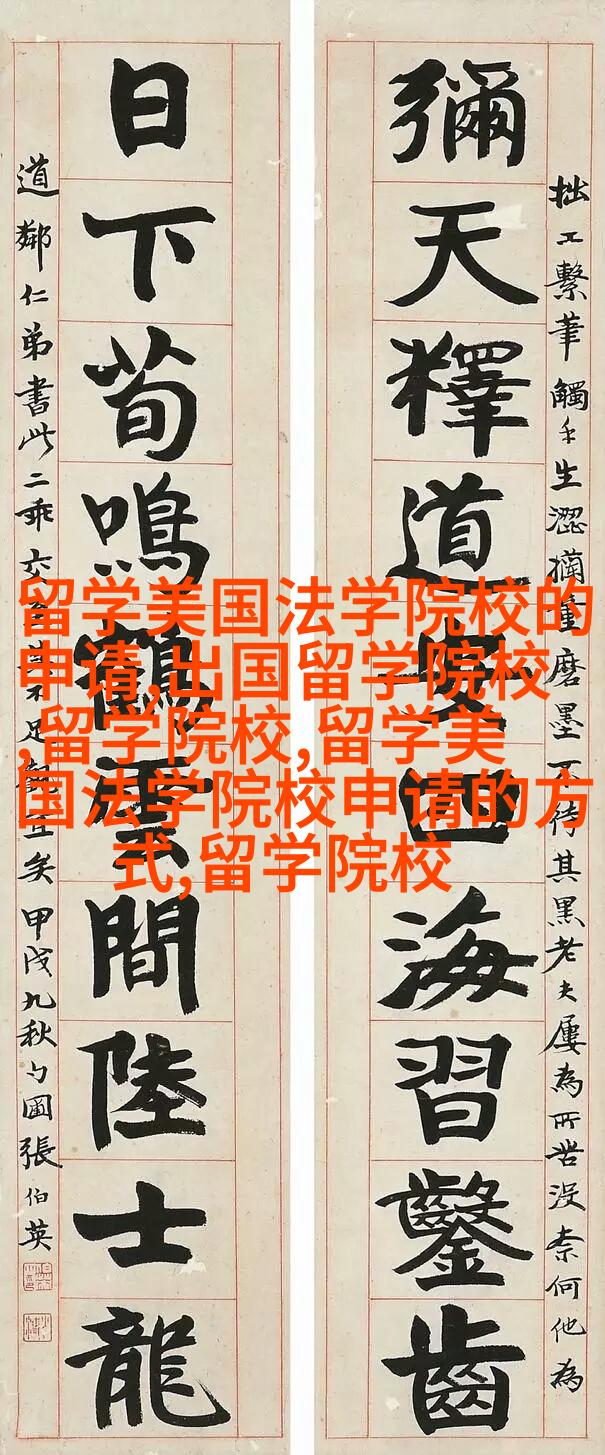 彌天釋道安四海習鑿齒
拙工繫筆觸手生澀摘
磨墨不待其黑老夫屢為所苦沒奈何他為
日下荀鳴鶴雲間陸士龍
道鄰仁弟書此二乘
足
矣甲戌九秋勺圃張伯英
留学美国法学院校的
申请,出国留学院校
,留学院校,留学美
国法学院校申请的方
式,留学院校